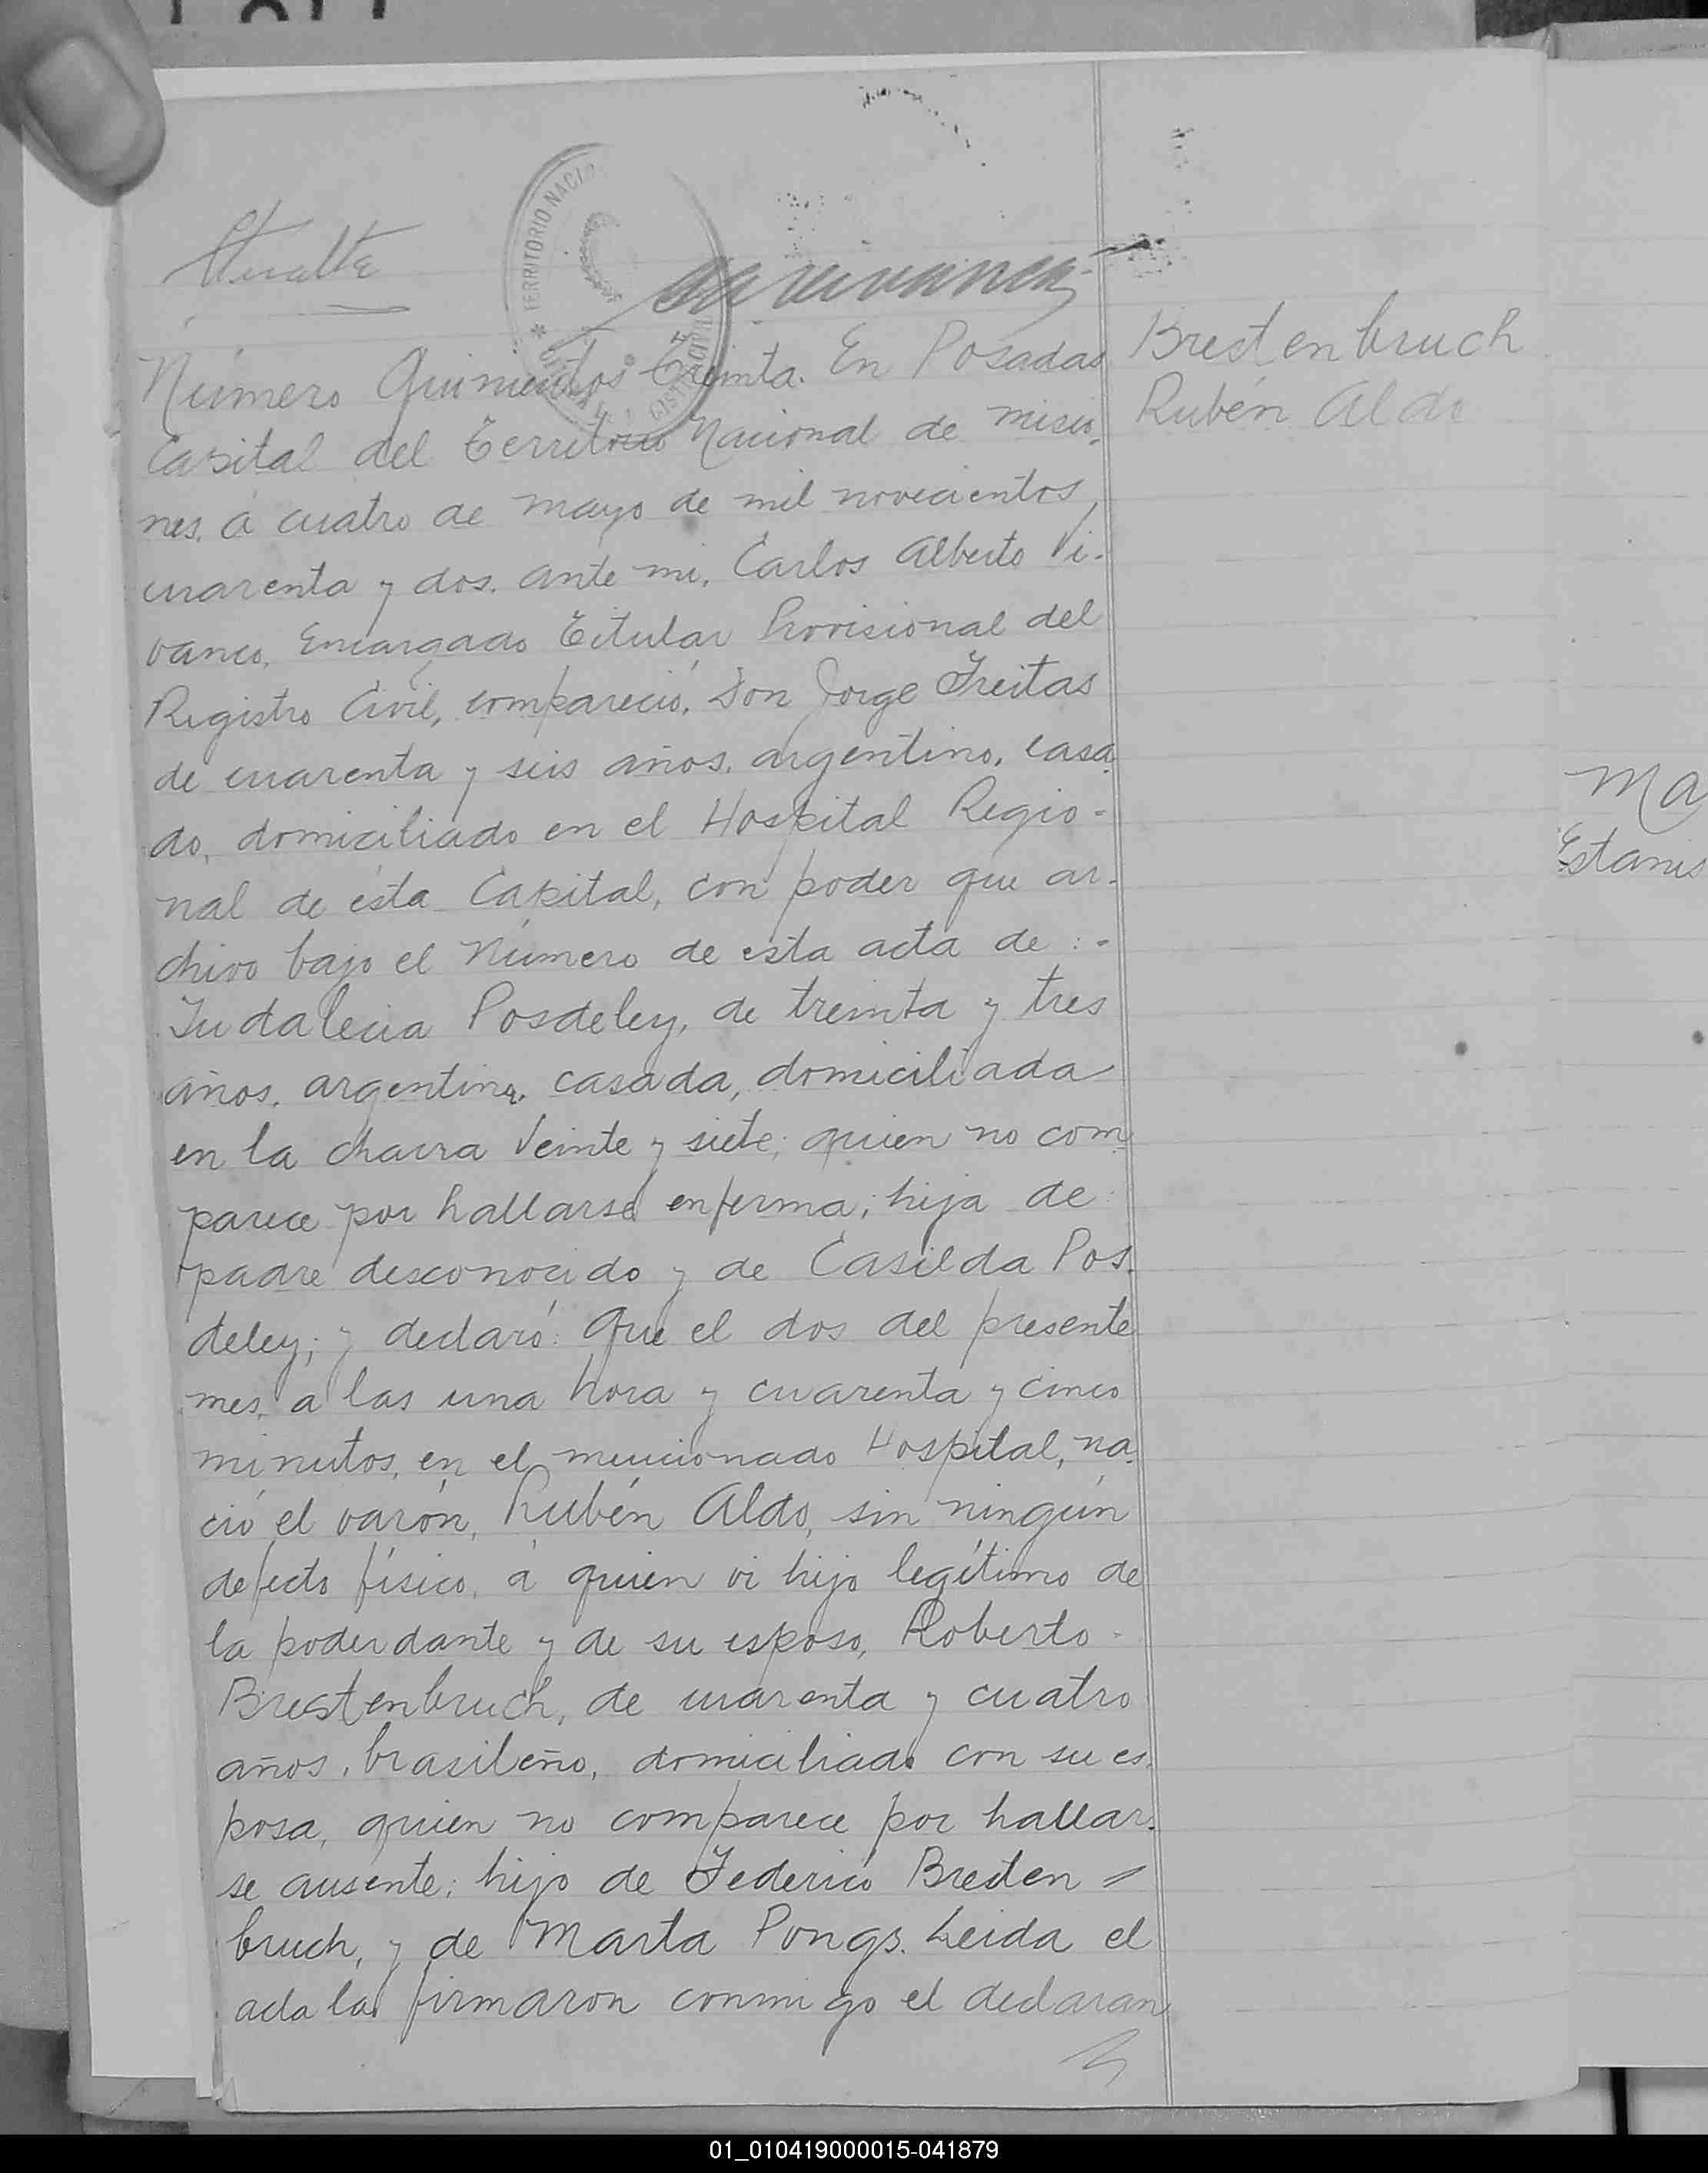 TERRITORIO NACIO
Número Quinientos Treinta. En Posadas
Capital del Territorio Nacional de Misio,
nes, a cuatro de mayo de mil novecientos
cuarenta y dos. ante mi, Carlos Alberto Vi-
vanco, Encargado Titular Provisional del
Registro Civil, compareció, Don Jorge Freitas
de cuarenta y seis años, argentino, casa
do, domiciliado en el Hospital Regio-
nal de ésta Capital, con poder que ar-
chivo bajo el Número de esta acta de :-
Indalecia Posdeley, de treinta y tres
años, argentina, casada, domiciliada
en la chacra Veinte y siete; quien no com
parece por hallarse enferma; hija de
padre desconocido y de Casilda Pos.
deley; y declaró: Que el dos del presente
mes, a las una hora y cuarenta y cinco
minutos, en el mencionado Hospital, na.
ció el varón, Rubén Aldo, sin ningún
defecto físico, á quien vi hijo legítimo de
la poderdante y de su esposo, Roberto -
Brestenbruch, de cuarenta y cuatro
años, brasileño, domiciliado con su es.
posa, quien no comparece por hallar.
se ausente; hijo de Federico Bresten =
bruch, y de Marta Pongs. Leida el
acta la firmaron conmigo el declaran
Brestenbruch
Rubén Aldo
Ma
Estanis
01_010419000015-041879